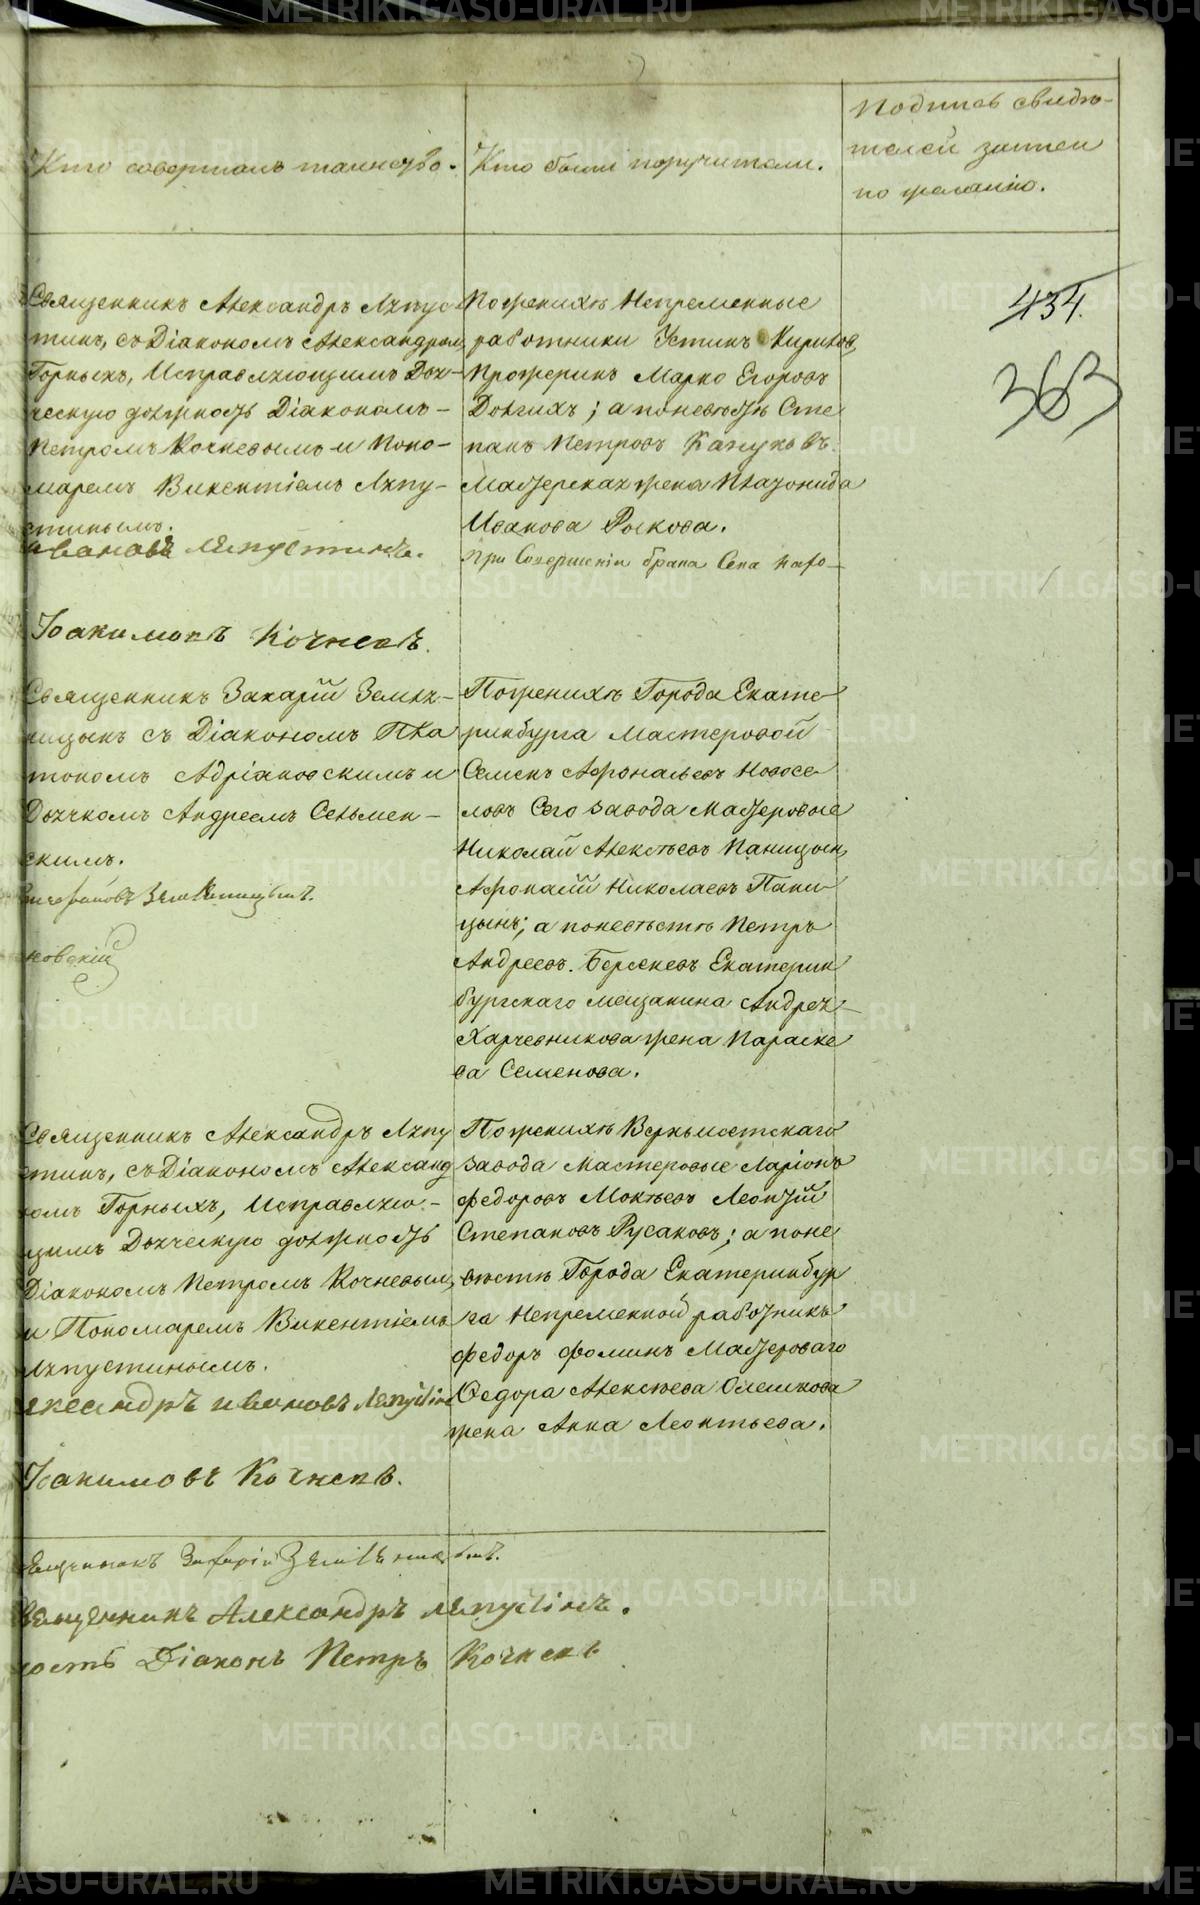 Кто совершалъ таинство.
Кто были поручители.
Подпись свидѣ-
телей записи
по желанію.
434.
363
Священникъ Александръ Ляпус
тинъ, съ Діакономъ Александром
Горныхъ, Исправляющимъ Дья-
ческую должность Діакономъ-
Петромъ Кочневымъ и Поно-
маремъ Викентіемъ Ляпу-
стинымъ.
Ивановъ Ляпустинъ.
Іоакимовъ Кочневъ.
По женихѣ Непременные
работники Устинъ Кириков
Прожеринъ Марко Егоровъ
Долгихъ; а по невѣстѣ Сте
панъ Петровъ
Мастерская жена Платонида
Иванова Рыкова.
При Совершеніи брака Сена
Священникъ Захарій Земля-
ницынъ съ Діакономъ Пла
тономъ Адріановскимъ и
Дьячкомъ Андреемъ Сельмен-
скимъ.
Земляницынъ.
новскій
По женихѣ Города Екате
ринбурга Мастеровой
Семенъ Афонасьевъ Новосе
ловъ Сего завода Мастеровые
Николай Алексѣевъ Паницын
Афонасій Николаевъ Пани
цынъ; а по невѣстѣ Петръ
Андреевъ. Берсеневъ Екатерин
бургскаго мещанина Андрея
Харчевникова жена Параске
ва Семенова.
Священникъ Александръ Ляпу
стинъ, съ Діакономъ Александ
ромъ Горныхъ, Исправляю-
щимъ Дьяческую должность
Діакономъ Петромъ Кочневым,
и Пономаремъ Викентіемъ
Ляпустинымъ.
лександръ Ивановъ Ляпустинъ
Іоакимовъ Кочневъ.
По женихѣ Верхъисетскаго
завода Мастеровые Ларіонъ
Федоровъ Моктѣевъ Леонтій
Степановъ Русаковъ; а по не
вѣстѣ Города Екатеринбур
га Непременной работникъ
Федоръ Фоминъ Мастероваго
Федора Алексѣева Олешкова
жена Анна Леонтьева.
вященникъ Захарій Земляницынъ.
вященникъ Александръ Ляпустинъ.
ность Діаконъ Петръ Кочневъ
METRIKI.GASO-URAL.RU